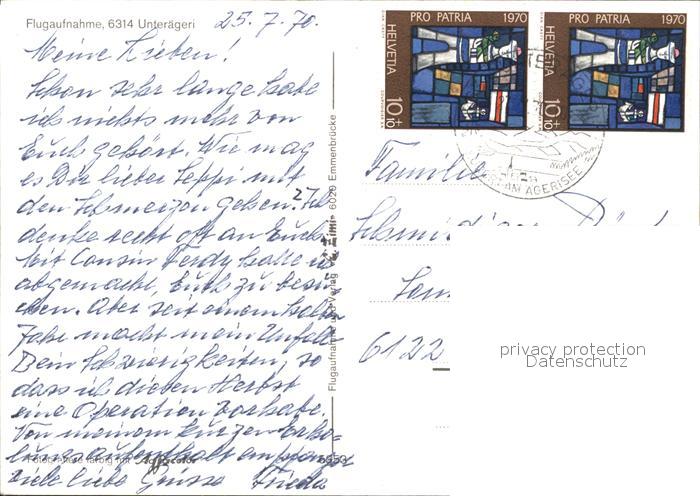 Flugaufnahme, 6314 Unterägeri
25.7.70.
Meine Lieben!
Schon sehr lange habe
ich nichts mehr von
Euch gehört. Wie mag
es Dir lieber Seppi mit
den Schmerzen gehen? Ich
denke recht oft an Euch.
Mit Cousin Ferdy hatte ich
abgemacht, Euch zu besu-
chen. Aber seit einem halben
Jahr macht mein Unfall-
Bein Schwierigkeiten, so
dass ich diesen Herbst
eine Operation vorhabe.
Von meinem kurzen Erho-
lungsaufenthalt empfangt
viele liebe Grüsse Frieda
Fotografiere farbig mit Agfacolor
Flugaufnahme und Verlag 6020 Emmenbrücke
PRO PATRIA 1970
HELVETIA
10+10
PRO PATRIA 1970
HELVETIA
10+10
AM ÄGERISEE
Familie
6122
privacy protection
Datenschutz